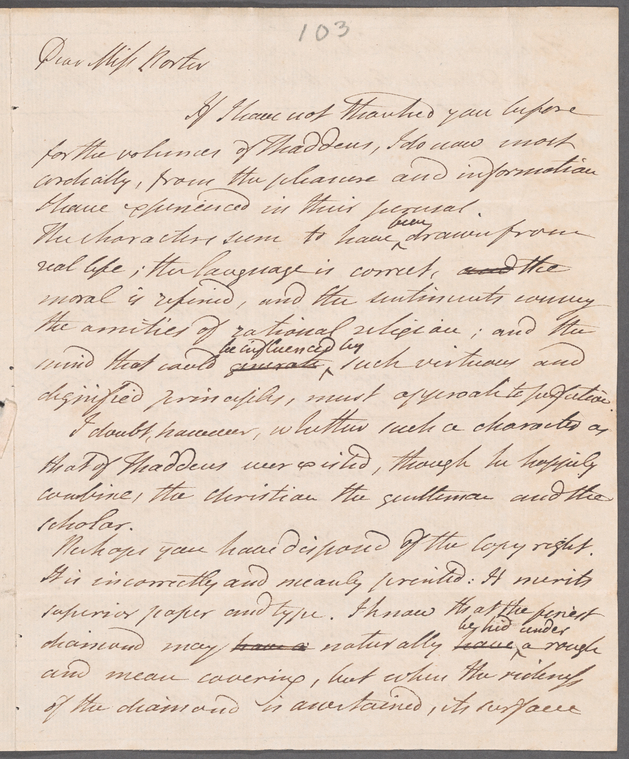 103
Dear Miss Porter
If I have not thanked you before
for the volumes of Thaddeus, I do now most
cordially, from the pleasure and information
I have experienced in their perusal.
been
The characters seem to have drawn from
real life; the language is correct, and the
moral is refined, and the sentiments convey
the amities of rational religion; and the
be influenced by
mind that could generate such virtuous and
dignified principles, must approach to perfection.
I doubt, however, whether such a character as
that of Thaddeus ever existed, though he happily
combines, the christian the gentleman and the
scholar.
Perhaps you have disposed of the copy right.
It is incorrectly and meanly printed: It merits
superior paper and type. I know that the finest
be hid under
diamond may have a naturally have a rough
and mean covering, but when the richness
of the diamond is ascertained, its surface